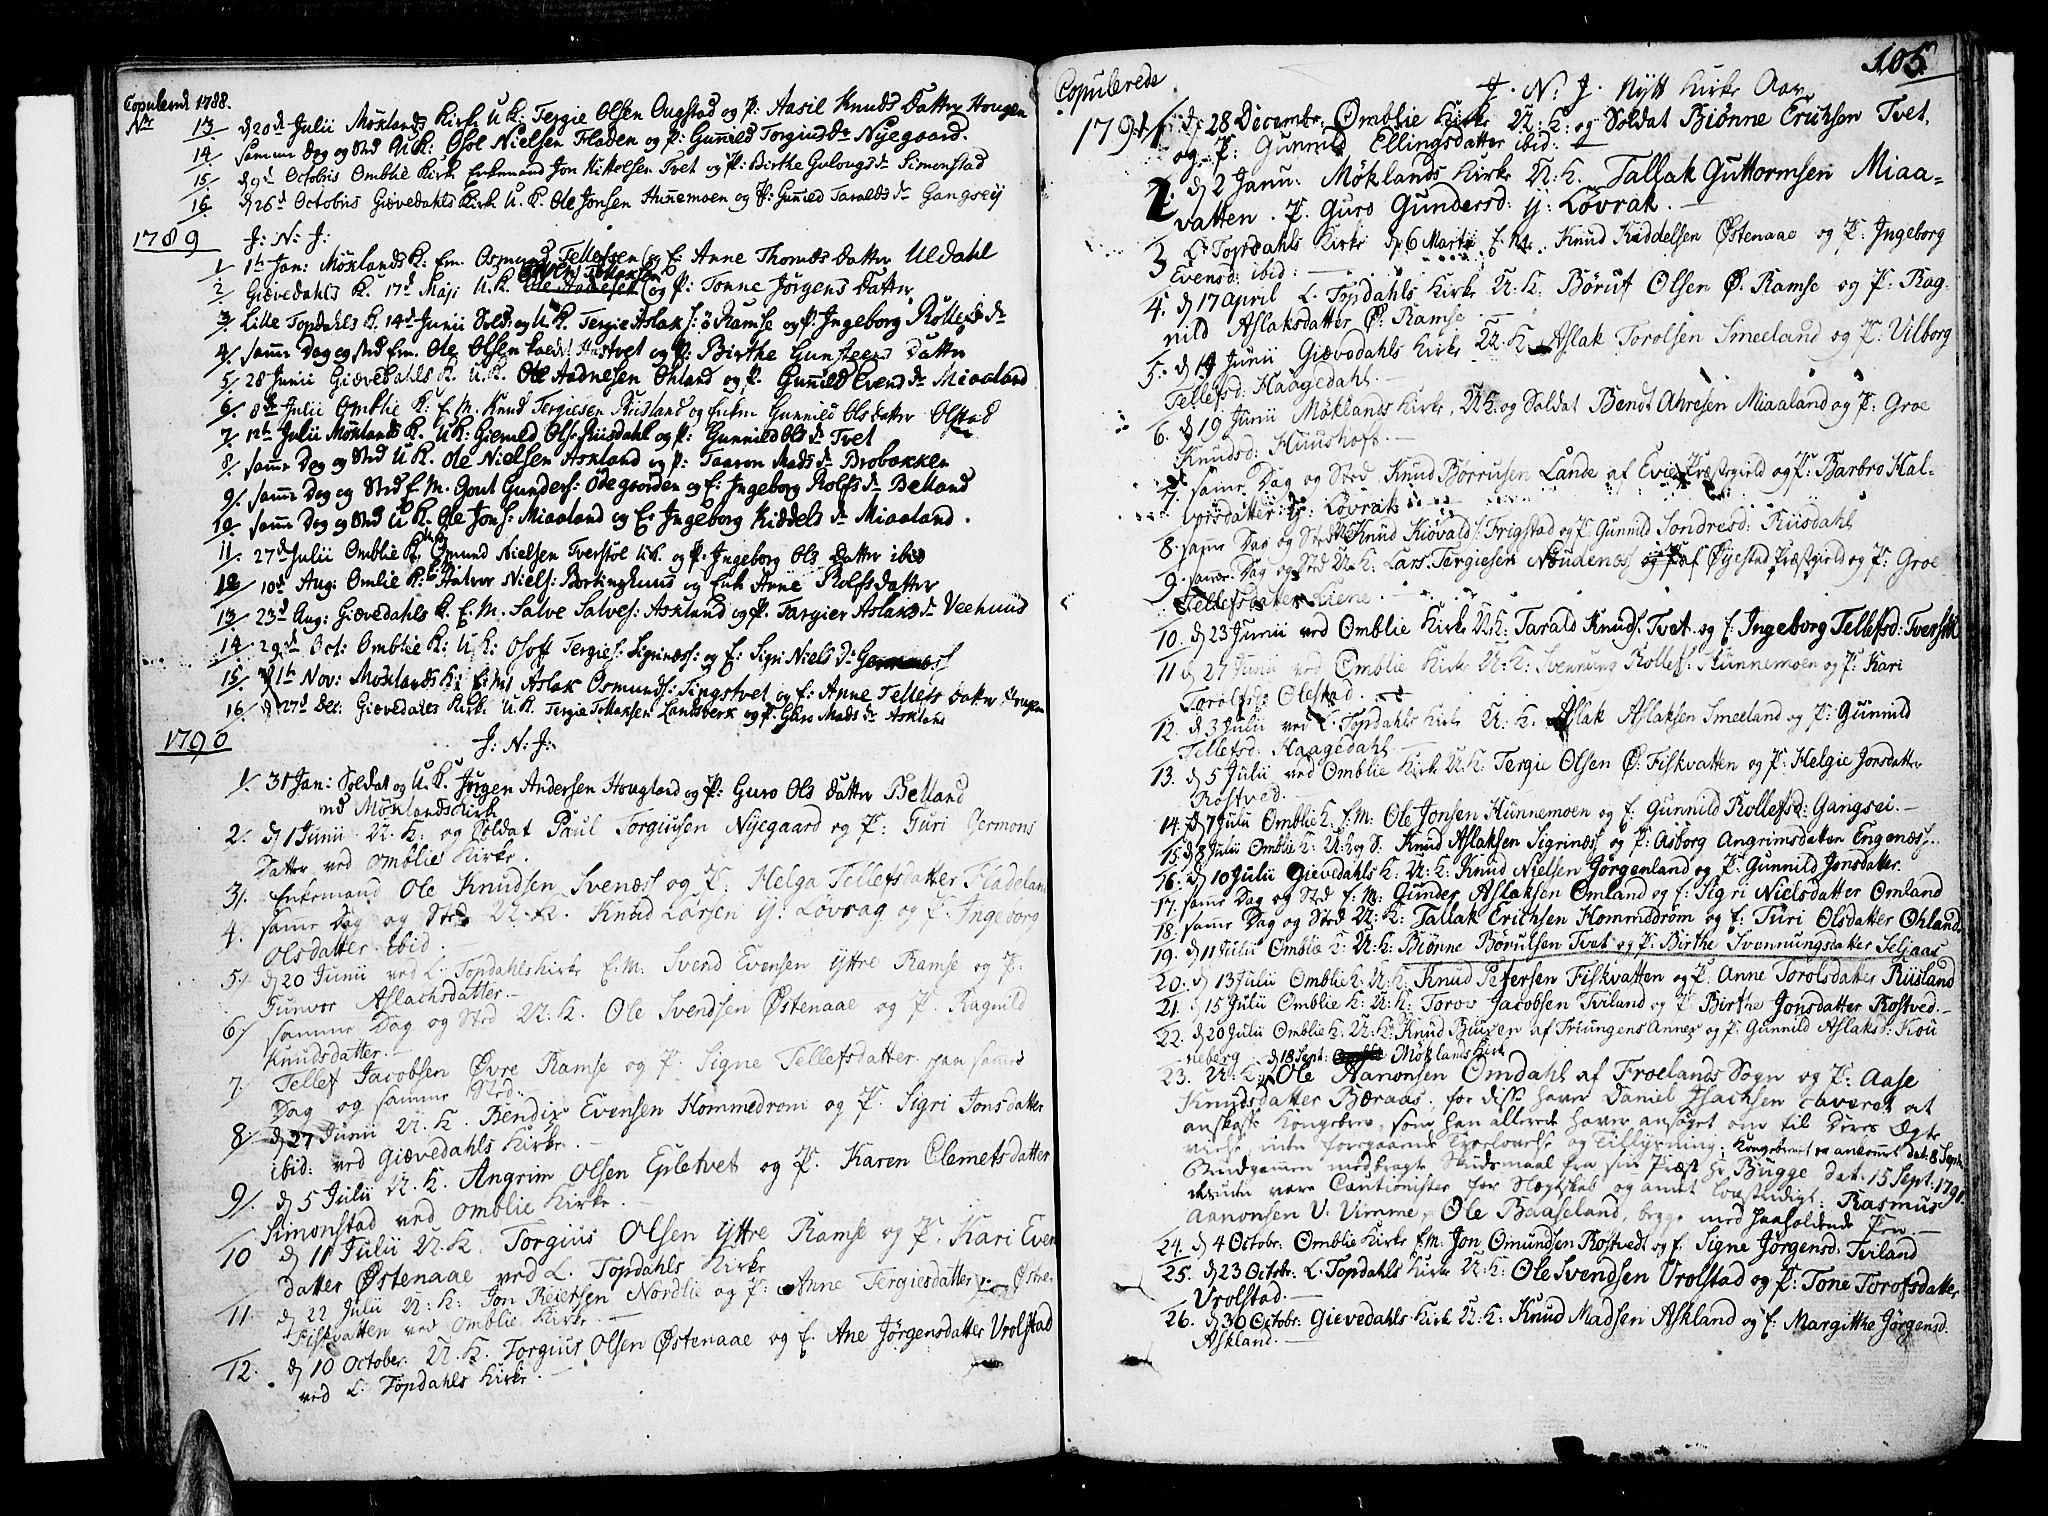 Copulered 1788.
No
13 d 20de Julii Möklands Kirk U.K: Tergie Olsen Ougstad og P: Aasil Knuds Datter Hougen
14 samme Dag og Sted U.K: Osol Nielsen Fladen og P: Gunnild Torgiusdr Nyegaard.
15 d 9d Octobris Omblie Kirk Enkemand Jon Kittelsen Tvet og P: Birthe Gulougs dr Simonstad
16 d 26d Octobris Giævedahls Kirk U.K. Ole Jonsen Hunnemoen og P: Gunnild Taralds dr Gangsey
1789 J: N: J:
1 1th Jan: Möklands K: Em. Osmund Tellefsen og E: Anne Thomæs Datter Uldahl
2 Giævedahls K. 17d Maji U.K. og P: Tonne Jörgens Datter
3 Lille Topdahls K. 14d Junii Sold: og U.K. Tergie Aslaks: ö Ramse og P: Ingeborg Rollefs dr
4 samme Dag og sted Em. Ole Olsen Hustvet og P: Birthe Gunsteens Datter
5 28 Junii Giævedahls K. U.K. Ole Aadnesen Ohland og P. Gunnild Evends dr Miaaland
6 8de Julii Omblie K: E.M. Knud Tergiesen Riisland og Enken Gunnild Olsdatter Olstad
7 12th Julii Möklands K. U.K: Gierulf Ols: Riisdahl og P: Gunnild Ols dr Tvet
8 samme Dag og Sted U.K. Ole Nielsen Askland og P: Taaron Mads dr Brobakken
9 samme Dag og Sted E.M. Gout Gunders: Ödegaarden og E: Ingeborg Rolfs dr Belland
10 samme Dag og Sted U.K. Ole Jons: Miaaland og E: Ingeborg Kiddels dr Miaaland.
11 27d Julii Omblie K. Omund Nielsen Tverstöl U.K. og P: Ingeborg Ols Datter ibid
12 10d Aug: Omlie K: Halvor Niels: og Enk Anne Rolfsdatter
13 23d Aug: Giævedahls K. E.M. Salve Salves: Askland og P: Targier Aslaks dr Veehuus
14 29d Oct: Omblie K: U.K: Osoft Tergies: Sigrinæss: og E: Sigri Niels dr
15 1th Nov: Möklands K: E:M: Aslak Osmunds: Tingstvet og E: Anne Tellefs Datter Hougen
16 d 27d Dec: Giævedahls Kirk. U.K. Tergie Tallaksen Landsverk og P: Guro Mads dr Askland
1790 J: N: J:
1. 31 Jan: Soldat og U.K. Jörgen Andersen Hougland og P: Guro Ols Datter Belland
ved Möklandskirk
2. d 1 Junii U.K: og Soldat Paul Torgiusen Nyegaard og P: Turi Germons
Datter ved Omblie Kirke.
3. Enkemand Ole Knudsen Svenæss og P. Helga Tellefsdatter Fladeland
4. samme Dag og Sted U.K. Knud Larsen Y: Løvrag og P. Ingeborg
Olsdatter ibid.
5. d 20 Junii ved L: Topdahls Kirke E.M: Svend Evensen Yttre Ramse og P.
Tunvor Aslachsdatter.
6 samme Dag og Sted U.K. Ole Svendsen Østenaae og P. Ragnild
Knudsdatter.
7. Tellef Jacobsen Øvre Ramse og P. Signe Tellefsdatter paa samme
Dag og samme Sted.
8. d 27 Junii U.K. Bendix Evensen Hommedrom og P. Sigri Jonsdatter
ibid: ved Giævedahls Kirke.
9. d 5 Julii U.K. Angrim Olsen Epletvet og P. Karen Clemetsdatter
Simonstad ved Omblie Kirke.
10 d 11 Julii U.K. Torgius Olsen Yttre Ramse og P. Kari Even
datter Østenaae ved L. Topdahls Kirke
11. d 22 Julii U.K: Jon Reiersen Nordlie og P: Anne Tergiesdatter Østre
Fiskvatten ved Omblie Kirke.
12. d 10 October U.K. Torgius Olsen Østenaae og E. Ane Jørgensdatter Urolstad
ved L. Topdahls Kirke.
105
Copulerede J. N. J. Nytt Kirke Aar
1791 1. d 28 Decembr. Omblie Kirke U.K: og Soldat Biønne Erichsen Tvet,
og P: Gunnild Ellingsdatter ibid:
2. d 2 Janu: Møklands Kirke U.K. Tallak Guttormsen Miaa=
vatten. P. Guro Gundersd: Y: Løvrak.
3 L: Topdahls Kirke d 6 Martii E.M. Knud Kiddelsen Østenaae og P: Ingeborg
Evensd: ibid:
4. d 17 April L. Topdahls Kirke U.K: Børut Olsen Ø. Ramse og P: Rag-
nild Aslaksdatter Ø: Ramse
5. d 14 Junii Giævedahls Kirke U.K. Aslak Torolsen Smeeland og P: Vilborg
Tellefsd: Haagedahl.
6. d 19 Junii Møklands Kirke, U.K. og Soldat Bendt Ahresen Miaaland og P: Groe
Knudsd: Huushoft.
7. samme Dag og Sted Knud Børrusen Lande af Evie Præstegield og P: Barbro Hal-
vorsdatter: Y: Løvrak
8. samme Dag og Sted Knud Kiøvalds: Frigstad og P: Gunnild Sondresd: Riisdahl
9. samme Dag og Sted U.K: Lars Tergiesen Næudenes af Øyestad Præstegield og P: Groe
Tellefsdatter Liene.
10. d 23 Junii ved Omblie Kirke U.K: Tarald Knuds: Tvet og E. Ingeborg Tellefsd: Tverstöl
11 d 27 Junii ved Omblie Kirke U.K: Svennung Rollefs: Hunnemoen og P: Kari
Torolfsd: Olestad.
12. d 3 Julii ved L. Topdahls Kirke U.K. Aslak Aslaksen Smeeland og P: Gunnild
Tellefsd: Haagedahl
13. d 5 Julii ved Omblie Kirke U.K: Tergie Olsen Ø: Fiskvatten og P: Helgie Jonsdatter
Rostved.
14. d 7 Julii Omblie K. E.M: Ole Jonsen Hunnemoen og E. Gunnild Rollefsd: Gangsei.
15. d 8 Julii Omblie K: U.K og S. Knud Aslaksen Sigrinæss og P: Asborg Angrimsdatter Engenæss
16. d 10 Julii Gievedahls K: U.K: Knud Nielsen Jørgenland og P: Gunnild Jonsdatter.
17. samme Dag og Sted E.M: Gunder Aslaksen Omland og E: Sigri Nielsdatter Omland
18. samme Dag og Sted U.K: Tallak Erichsen Hommedrøm og E: Turi Olsdatter Ohland
19. d 11 Julii Omblie K: U.K: Biønne Børulsen Tvet og P: Birthe Svennungsdatter Seljaas
20. d 13 Julii Omblie K: U.K: Knud Petersen Fiskvatten og P. Anne Torolsdatter Riisland
21. d 15 Julii Omblie K: U.K: Torov Jacobsen Tviland og P. Birthe Jonsdatter Rostved.
22. d 20 Julii Omblie K: U.K: Knud Biusen af Triungens Annex og P: Gunnild Aslaksd: Kou
neberg d 18 Sept: Møklands Kirk
23. U.K: Ole Aanonsen Omdahl af Froelands Sogn og P: Aase
Knudsdatter Bæraas, for disse haver Daniel Isachsen caveret at
anskaffe Kongebrev, som han allerede haver ansøgt om til Deres Ægte
vielse uden foregaaende Troelovelse og Tillysning; Kongebrevet er ankommet dat: 8 Sept
Brudgommen medbragte Skudsmaal fra sin Præst Hr Bugge dat. 15 Sept: 1791.
desuden vare Cautionister for Slægtskab og andet lovstridigt: Rasmus
Aanonsen V: Vimme, Ole Baaseland, begge med paaholdende Pen
24. d 4 Octobr: Omblie Kirke E.M: Jon Omundsen Rostvedt og E. Signe Jørgensd: Tviland
25. d 23 Octobr: L. Topdahls Kirke U.K: Ole Svendsen Urolstad og P: Tone Torofsdatter
Urolstad.
26. d 30 Octobr: Gievedahls Kirk U.K: Knud Madsen Askland og E. Margitthe Jørgensd.
Askland.